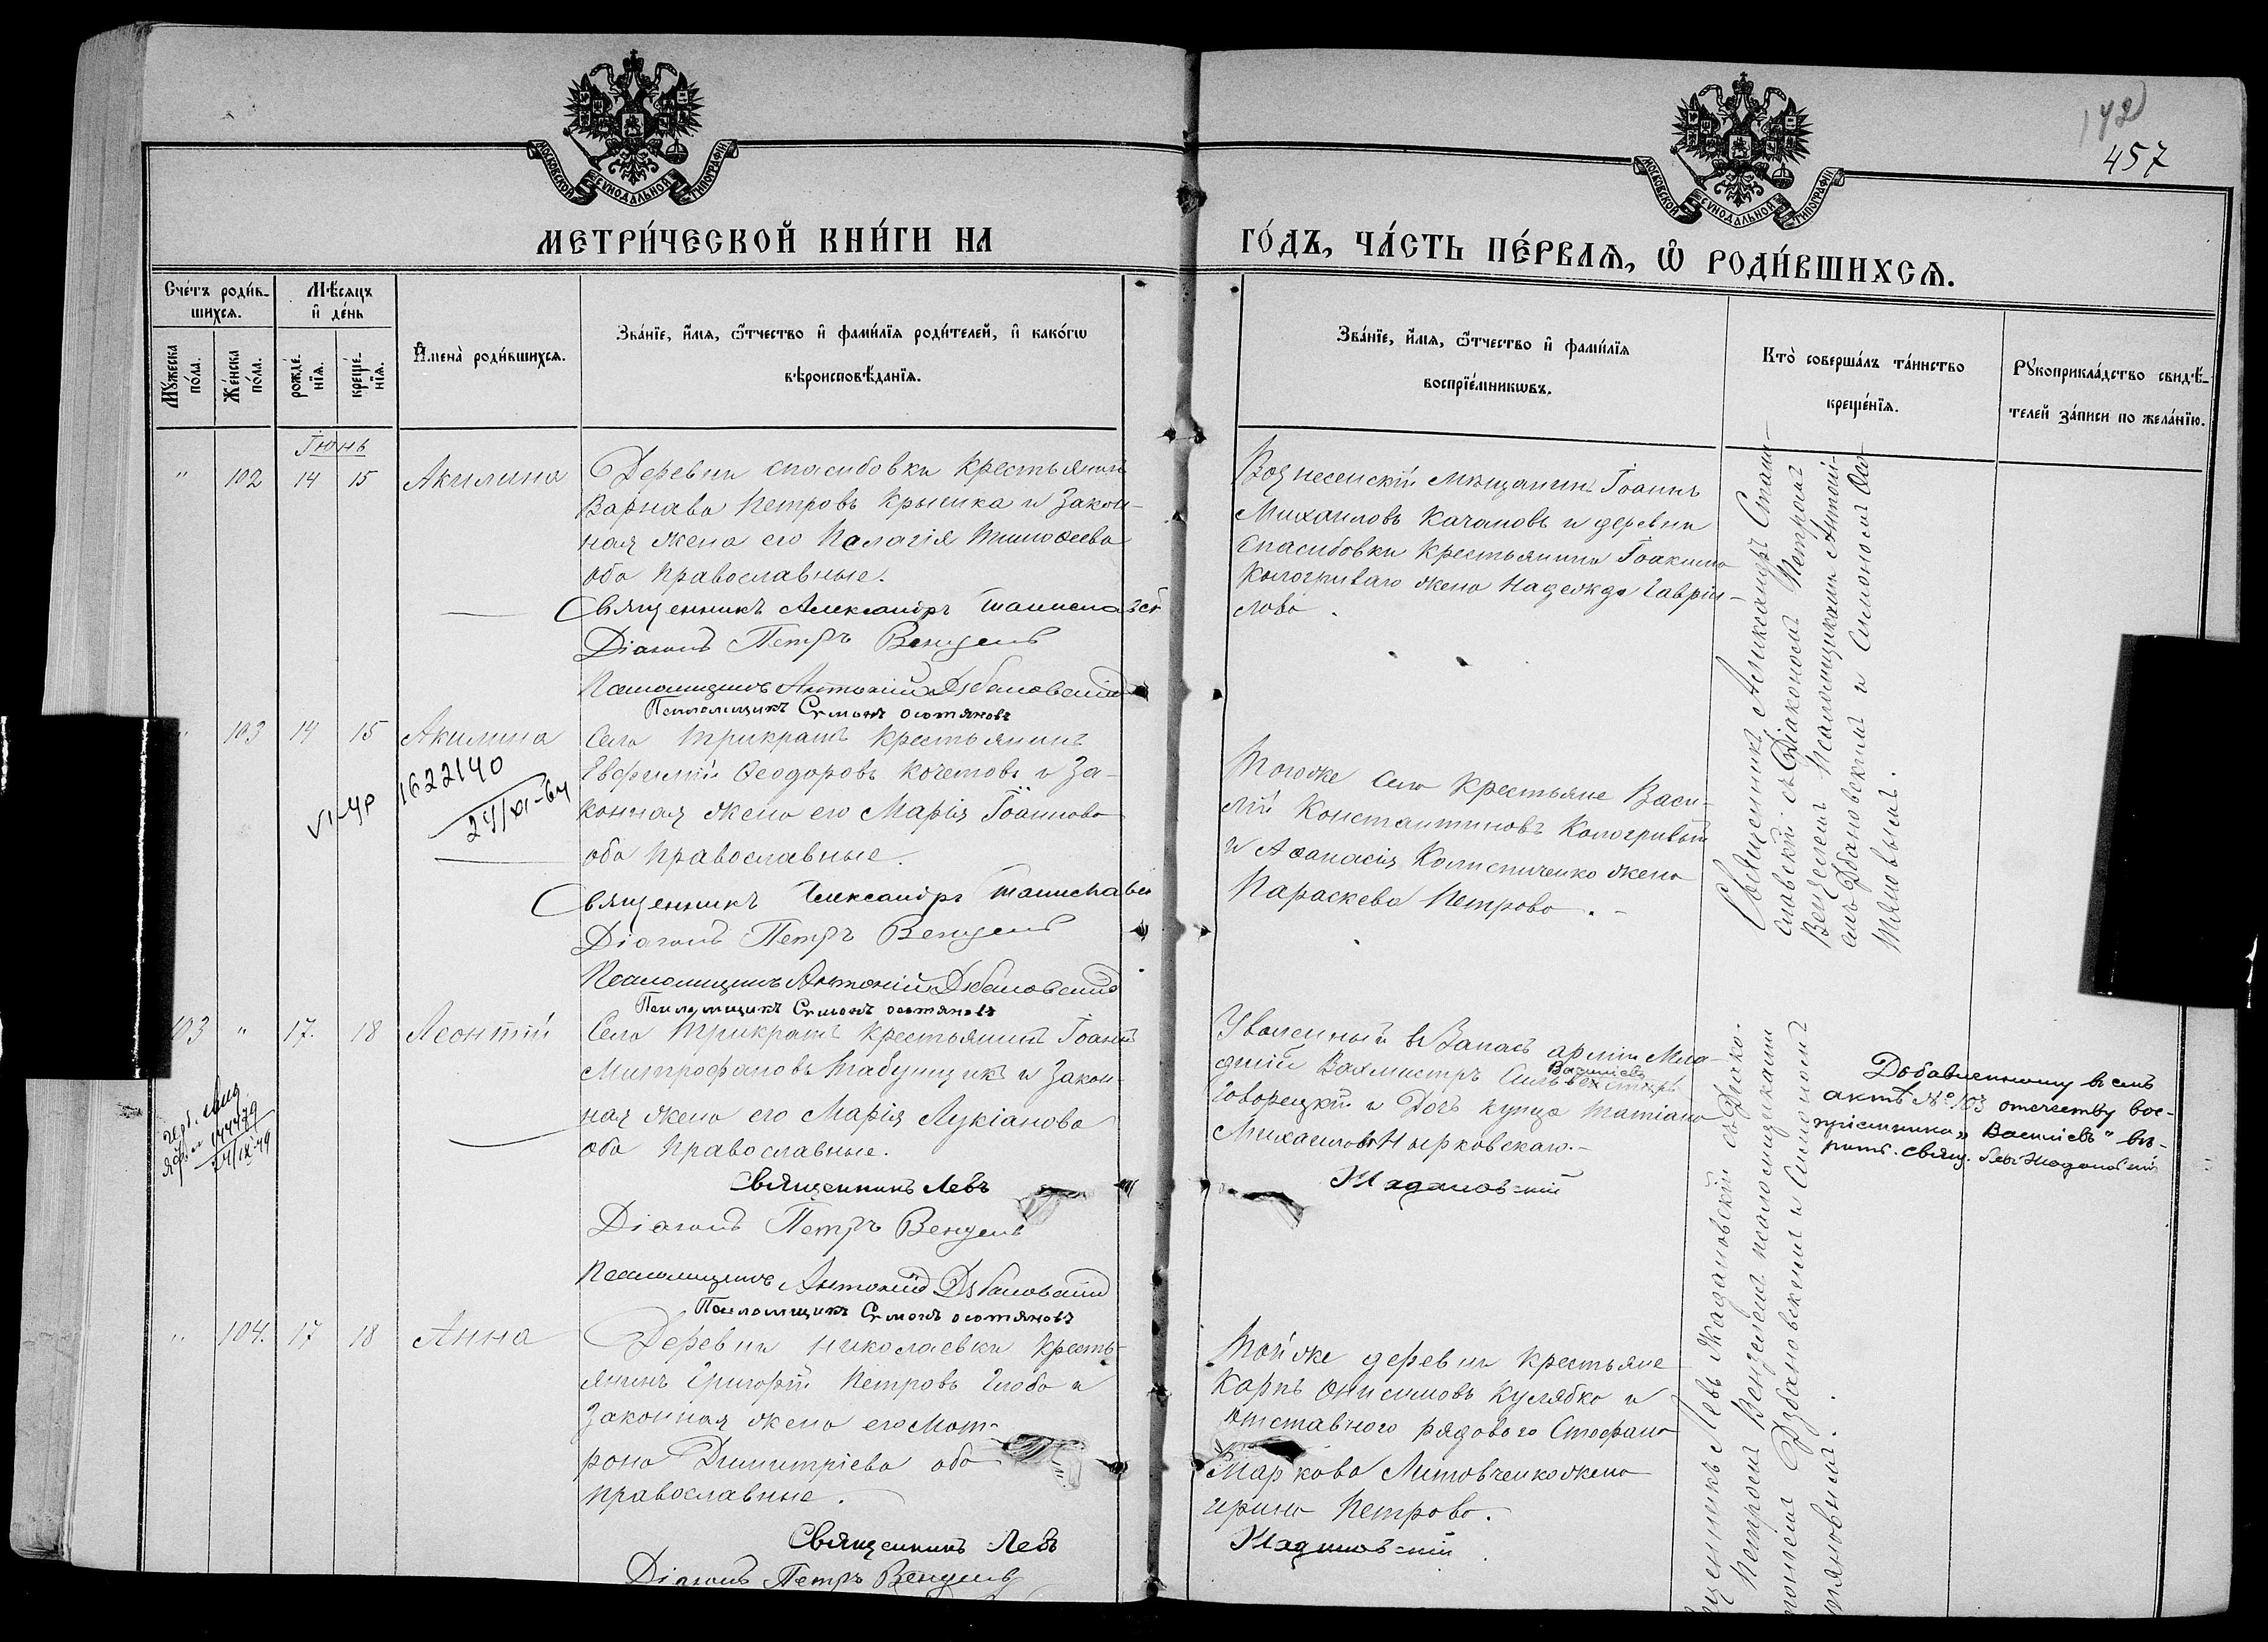 142
457
МОСКОВСКОЙ СѴНОДАЛЬНОЙ ТИПОГРАФІИ
МОСКОВСКОЙ СѴНОДАЛЬНОЙ ТИПОГРАФІИ
МЕТРИ́ЧЕСКОЙ КНИ́ГИ НА
ГО́ДЪ, ЧА́СТЬ ПЕ́РВАѦ, Ѡ҆ РОДИ́ВШИХСѦ.
Сче́тъ роди́в-
шихсѧ.
Мѣ́сѧцъ
и҆ де́нь
Мꙋ́жеска
по́ла.
Же́нска
по́ла.
рожде́-
нїѧ.
креще́-
нїѧ.
И҆мена̀ роди́вшихсѧ.
Зва́нїе, и҆́мѧ, ѻ҆́тчество и҆ фами́лїѧ роди́телей, и҆ како́гѡ
вѣроисповѣ́данїѧ.
Зва́нїе, и҆́мѧ, ѻ҆́тчество и҆ фами́лїѧ
воспрїе́мникѡвъ.
Кто̀ соверша́лъ та́инство
креще́нїѧ.
Рꙋкоприкла́дство свидѣ́-
телей за́писи по жела́нїю.
Іюнь
" 102 14 15 Акилина
Деревни Спасибовки крестьянинъ
Варнава Петровъ Крышка и закон-
ная жена его Пелагія Тимоѳеева
оба православные.
Священникъ Александръ Станиславск
Діаконъ Петръ Венцель
Псаломщикъ Антоній Дзбановскій
Псаломщикъ Симонъ Остяновъ
Вознесенскій мѣщанинъ Іоаннъ
Михаиловъ Качановъ и деревни
Спасибовки крестьянина Іоакима
Кологриваго жена Надежда Гаврiи-
лова.
Священникъ Александръ Стани-
славскій съ Діакономъ Петромъ
Венцелемъ Псаломщиками Антоні-
емъ Дзбановскимъ и Симономъ Ос-
тяновымъ.
" 103 14 15 Акилина
VI-ЦР 1622140
24/XI-64
Села Трикратъ крестьянинъ
Евфимій Ѳеодоровъ Кочетовъ и за-
конная жена его Марія Іоаннова
оба православные.
Священникъ Александръ Станиславск
Діаконъ Петръ Венцель
Псаломщикъ Антоній Дзбановскій
Псаломщикъ Симонъ Остяновъ
Тогоже села крестьяне Васи-
лій Константиновъ Кологривый
и Аѳанасія Колисниченко жена
Параскева Петрова.
103 " 17. 18 Леонтій
14/IX-49
Села Трикратъ крестьянинъ Іоаннъ
Митрофановъ Табунщикъ и закон-
ная жена его Марія Лукіанова
оба православные.
Священникъ Левъ
Жадановскій
Діаконъ Петръ Венцель
Псаломщикъ Антоній Дзбановскій
Псаломщикъ Симонъ Остяновъ
Уволенный въ запасъ арміи Мла-
дшій Вахмистръ
Васильевъ
Говорецкій и дочь купца Татіана
Михаилова Нырковскаго.
Добавленному въ семъ
актѣ № 103 отечеству вос-
пріемника „Васильевъ" вѣ-
рить. Свящ. Левъ Жадановскій
Священникъ Левъ Жадановскій съ Діако-
Петромъ Венцелемъ псаломщиками
Дзбановскимъ и Симономъ
" 104. 17 18 Анна
Деревни Николаевки кресть-
янинъ Григорій Петровъ Глоба и
законная жена его Мат-
рона Димитріева оба
православные.
Священникъ Левъ
Жадановскій
Діаконъ Петръ Венцель
Той же деревни крестьяне
Карпъ Онисимовъ Кулябко и
отставного рядового Стефана
Маркова Литовченко жена
Ирина Петрова.